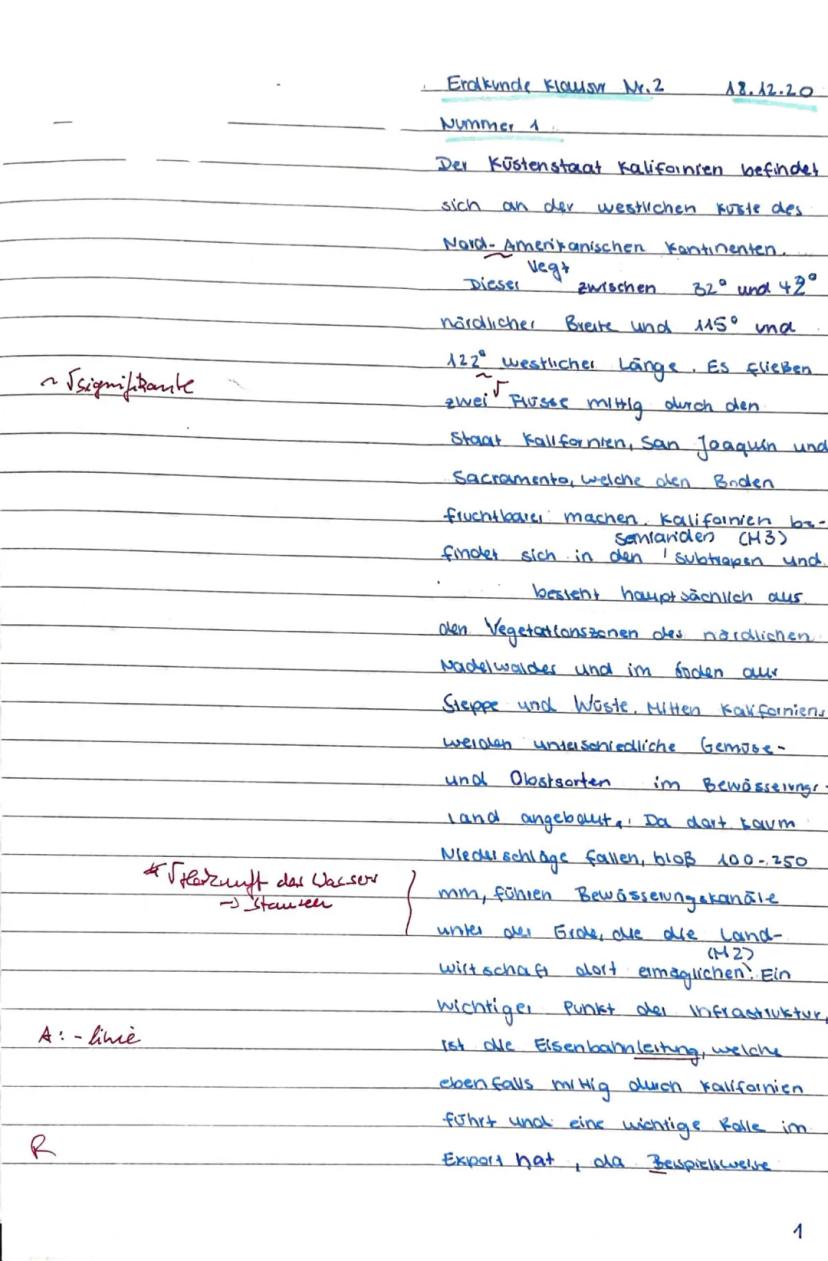 Erdkunde Klausur Nr.2 18.12.20
Nummer 1
Der Küstenstaat Kalifornien befindet
sich an der westlichen Küste des
Nord-Amerikanischen Kontinenten.
Dieser liegt zwischen 32° und 42°
nördlicher Breite und 115° und
122° westlicher Länge. Es fließen
~ √signifikante
zwei √ Flüsse mittig durch den
Staat Kalifornien, San Joaquin und
Sacramento, welche den Boden
fruchtbarer machen. Kalifornien be-
findet sich in den semiariden Subtropen (M3) und
besteht hauptsächlich aus
den Vegetationszonen des nördlichen
Nadelwaldes und im Boden aus
Steppe und Wüste. Mitten Kaliforniens
werden unterschiedliche Gemüse-
und Obstsorten im Bewässerungs-
land angebaut. Da dort kaum
Niederschläge fallen, bloß 100-250
* √Herkunft des Wasser
→ Stauseen
mm, führen Bewässerungskanäle
unter der Erde, die die Land-
wirtschaft dort ermöglichen (M2). Ein
wichtiger Punkt der Infrastruktur,
A: - linie
ist die Eisenbahnleitung, welche
ebenfalls mittig durch Kalifornien
führt und eine wichtige Rolle im
R
Export hat, da Beispielsweise
1